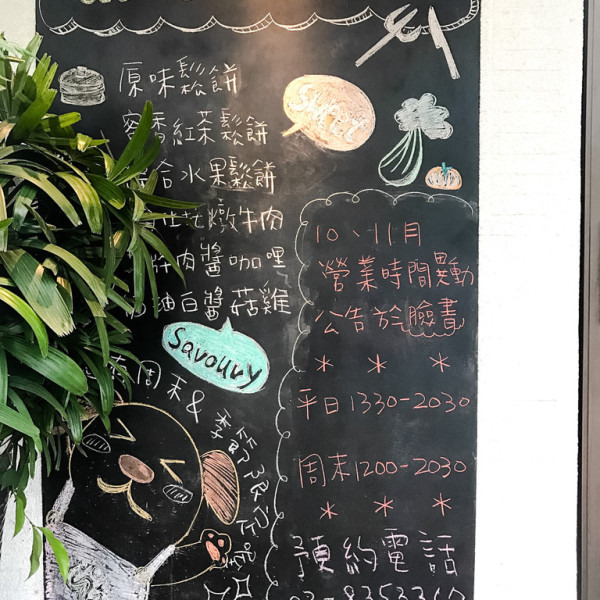 原味鬆餅
蜜香紅茶鬆餅
合水果鬆餅
Sweet
燉牛肉
肉醬咖哩
油白醬菇雞
Savoury
周末&
季節限定
10、11月
營業時間異動
公告於臉書
* * *
平日1330-2030
周末1200-2030
* * *
預約電話